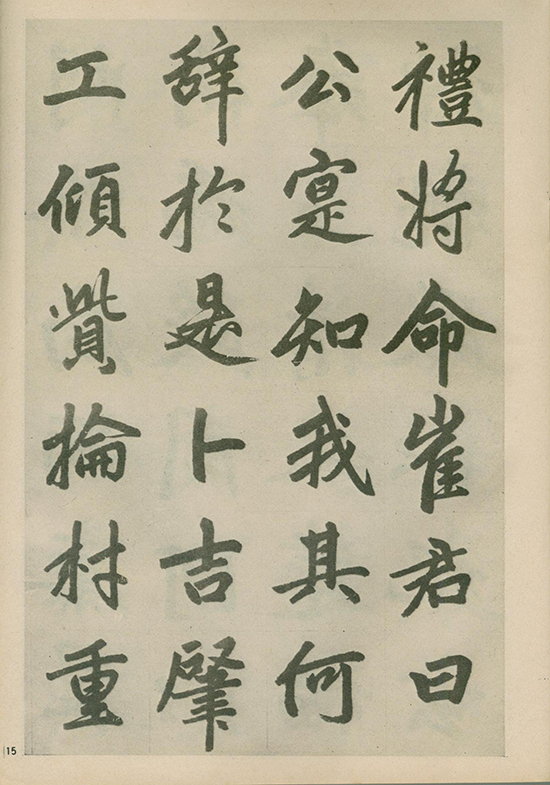 禮將命崔君曰
公寔知我其何
辞於是卜吉肇
工傾貲掄材重
15